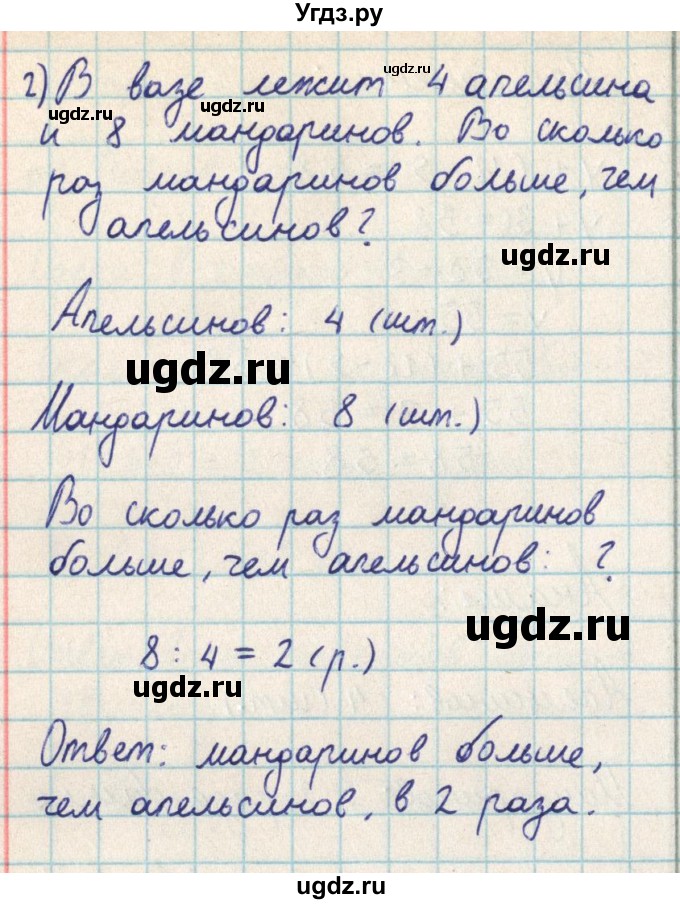 Угдз.ру
г) В вазе лежит 4 апельсина
и 8 мандаринов. Во сколько
раз мандаринов больше, чем
апельсинов?
Апельсинов: 4 (шт.)
Мандаринов: 8 (шт.)
Во сколько раз мандаринов
больше, чем апельсинов: ?
8 : 4 = 2 (р.)
Ответ: мандаринов больше,
чем апельсинов, в 2 раза.
ugdz.ru
ugdz.ru
ugdz.ru
ugdz.ru
ugdz.ru
ugdz.ru
ugdz.ru